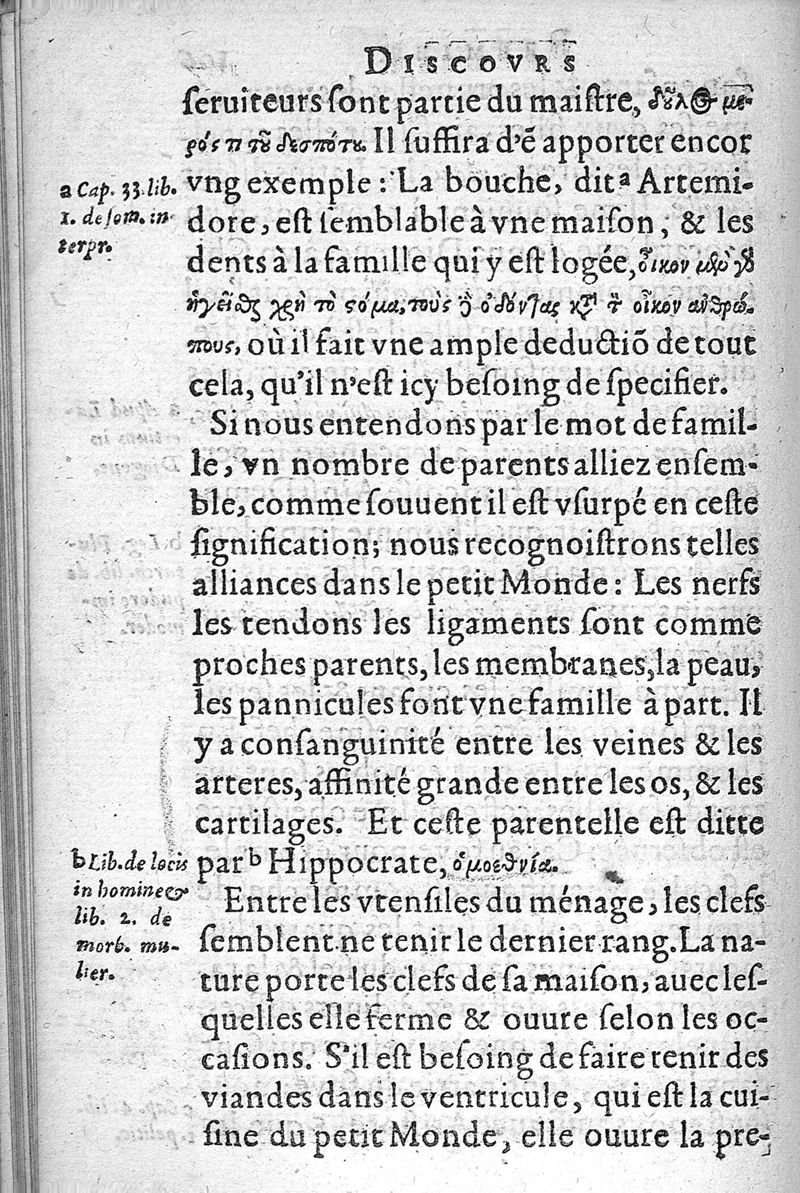 DISCOVRS
ſeruiteurs ſont partie du maiſtre, δοῦλος μέ-
ρός τι τοῦ δεσπότου. Il ſuffira d'ẽ apporter encor
vng exemple : La bouche, dit ᵃ Artemi-
dore, eſt ſemblable à vne maiſon, & les
dents à la famille qui y eſt logée, οἶκον μὲν γὸ
ἡγεῖσθαι χρὴ τὸ στόμα, τοὺς δὲ ὀδόντας κατὰ τὸν οἶκον ἀνθρώ-
πους, où il fait vne ample deductiõ de tout
cela, qu'il n'eſt icy beſoing de ſpecifier.
Si nous entendons par le mot de famil-
le, vn nombre de parents alliez enſem-
ble, comme ſouuent il eſt vſurpé en ceſte
ſignification; nous recognoiſtrons telles
alliances dans le petit Monde : Les nerfs
les tendons les ligaments ſont comme
proches parents, les membranes, la peau,
les pannicules font vne famille à part. Il
y a conſanguinité entre les veines & les
arteres, affinité grande entre les os, & les
cartilages. Et ceſte parentelle eſt ditte
par ᵇ Hippocrate, ὁμοεθνία.
Entre les vtenſiles du ménage, les clefs
ſemblent ne tenir le dernier rang. La na-
ture porte les clefs de ſa maiſon, auec leſ-
quelles elle ferme & ouure ſelon les oc-
caſions. S'il eſt beſoing de faire tenir des
viandes dans le ventricule, qui eſt la cui-
ſine du petit Monde, elle ouure la pre-
a Cap. 33. lib.
1. de ſom. in-
terpr.
b Lib. de locis
in homine &
lib. 2. de
morb. mu-
lier.